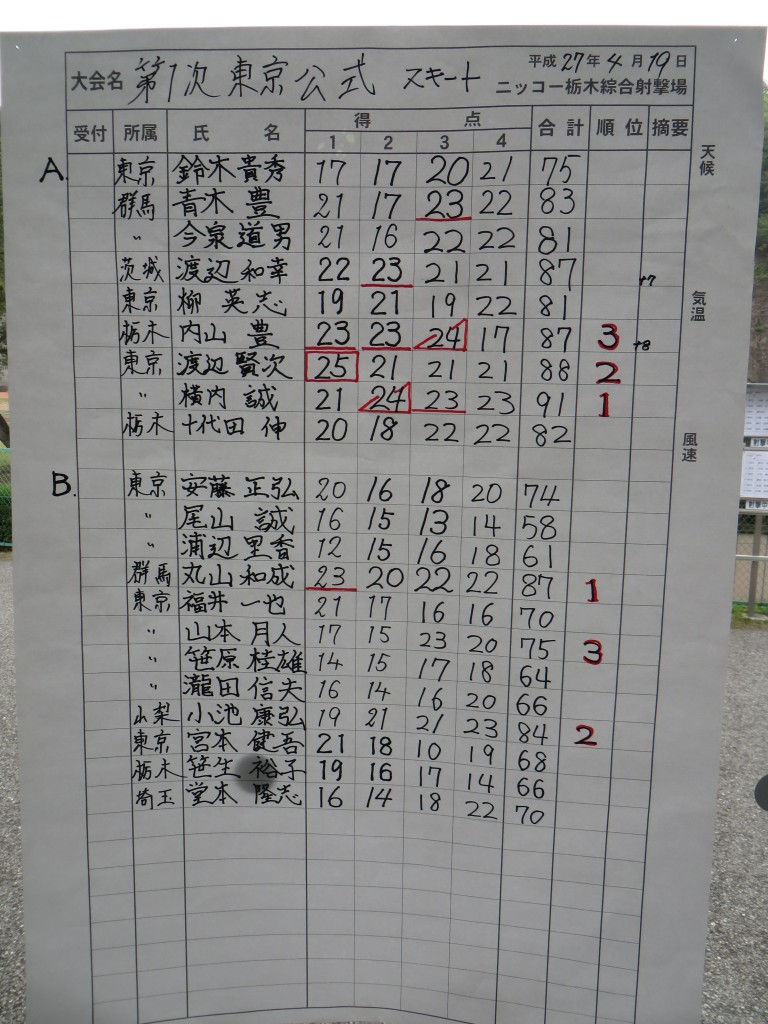 大会名 第1次東京公式 スキート 平成27年4月19日
ニッコー栃木綜合射撃場
受付 所属 氏名 得点 合計 順位 摘要
1 2 3 4
天候
A. 東京 鈴木貴秀 17 17 20 21 75
群馬 青木豊 21 17 23 22 83
〃 今泉道男 21 16 22 22 81
茨城 渡辺和幸 22 23 21 21 87 +7
気温
東京 柳英志 19 21 19 22 81
栃木 内山豊 23 23 24 17 87 3 +8
東京 渡辺賢次 25 21 21 21 88 2
〃 横内誠 21 24 23 23 91 1
栃木 十代田伸 20 18 22 22 82
風速
B. 東京 安藤正弘 20 16 18 20 74
〃 尾山誠 16 15 13 14 58
〃 浦辺里香 12 15 16 18 61
群馬 丸山和成 23 20 22 22 87 1
東京 福井一也 21 17 16 16 70
〃 山本月人 17 15 23 20 75 3
〃 笹原桂雄 14 15 17 18 64
〃 瀧田信夫 16 14 16 20 66
山梨 小池康弘 19 21 21 23 84 2
東京 宮本健吾 21 18 10 19 68
栃木 笹生裕子 19 16 17 14 66
埼玉 堂本隆志 16 14 18 22 70